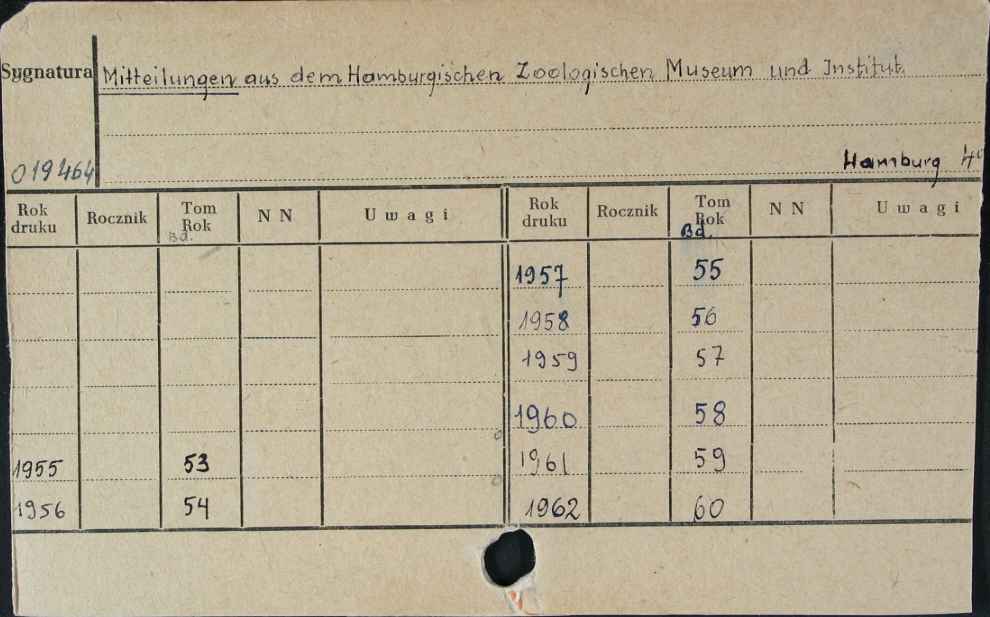 Sygnatura Mitteilungen aus dem Hamburgischen Zoologischen Museum und Institut.
019464 Hamburg 4°
Rok druku Rocznik Tom Rok Bd. N N Uwagi Rok druku Rocznik Tom Rok Bd. N N Uwagi
1957 55
1958 56
1959 57
1960 58
1955 53 1961 59
1956 54 1962 60